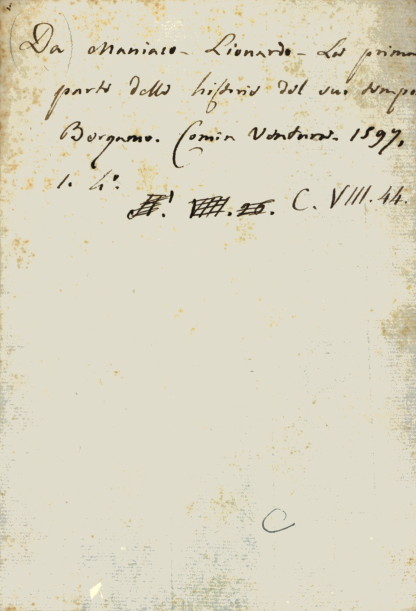 (Da) Maniaco - Lionardo - La prima
parte delle historie del suo tempo
Bergamo. Comin Ventura. 1597.
1. 4º.
VIII. 26. C. VIII. 44.
C